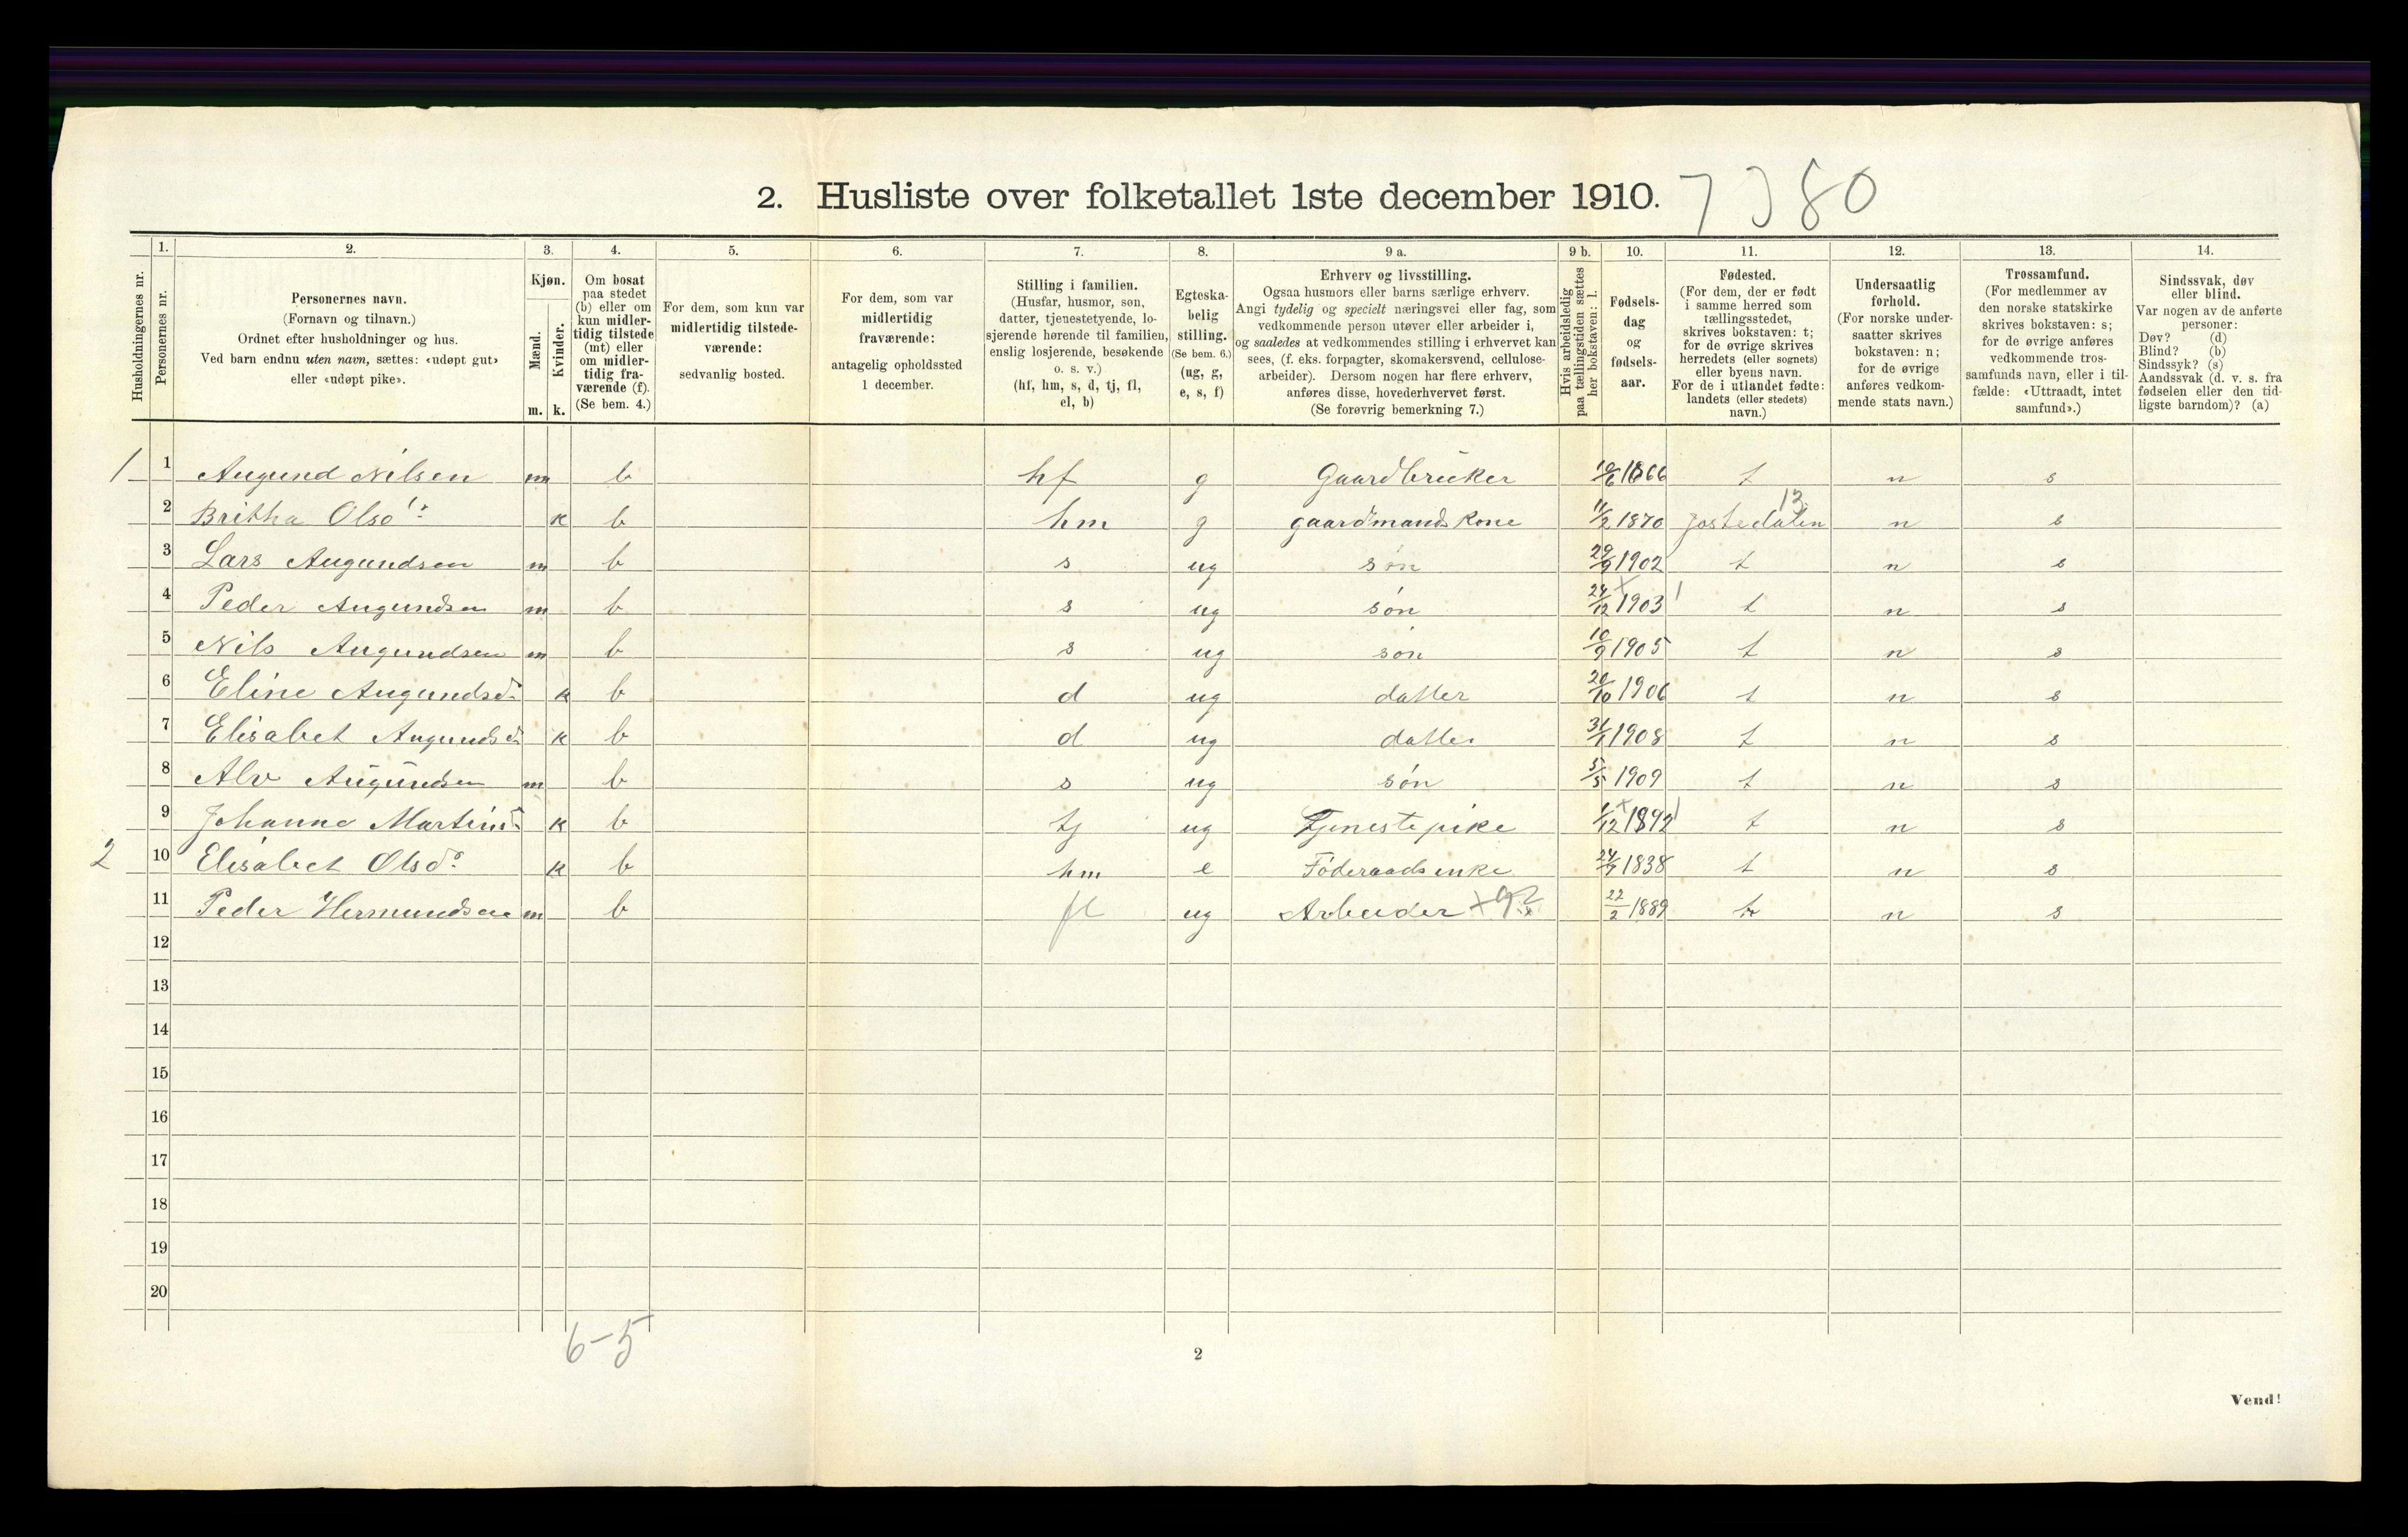 2. Husliste over folketallet 1ste december 1910. 7380
Husholdningernes nr.
1. Personernes nr.
2. Personernes navn.
(Fornavn og tilnavn.)
Ordnet efter husholdninger og hus.
Ved barn endnu uten navn, sættes: «udøpt gut»
eller «udøpt pike».
3. Kjøn.
Mænd. m.
Kvinder. k.
4. Om bosat
paa stedet
(b) eller om
kun midler-
tidig tilstede
(mt) eller
om midler-
tidig fra-
værende (f).
(Se bem. 4.)
5. For dem, som kun var
midlertidig tilstede-
værende:
sedvanlig bosted.
6. For dem, som var
midlertidig
fraværende:
antagelig opholdssted
1 december.
7. Stilling i familien.
(Husfar, husmor, søn,
datter, tjenestetyende, lo-
sjerende hørende til familien,
enslig losjerende, besøkende
o. s. v.)
(hf, hm, s, d, tj, fl,
el, b)
8. Egteska-
belig
stilling.
(Se bem. 6.)
(ug, g,
e, s, f)
9 a. Erhverv og livsstilling.
Ogsaa husmors eller barns særlige erhverv.
Angi tydelig og specielt næringsvei eller fag, som
vedkommende person utøver eller arbeider i,
og saaledes at vedkommendes stilling i erhvervet kan
sees, (f. eks. forpagter, skomakersvend, cellulose-
arbeider). Dersom nogen har flere erhverv,
anføres disse, hovederhvervet først.
(Se forøvrig bemerkning 7.)
9 b. Hvis arbeidsledig
paa tællingstiden sættes
her bokstaven: l.
10. Fødsels-
dag
og
fødsels-
aar.
11. Fødested.
(For dem, der er født
i samme herred som
tællingsstedet,
skrives bokstaven: t;
for de øvrige skrives
herredets (eller sognets)
eller byens navn.
For de i utlandet fødte:
landets (eller stedets)
navn.)
12. Undersaatlig
forhold.
(For norske under-
saatter skrives
bokstaven: n;
for de øvrige
anføres vedkom-
mende stats navn.)
13. Trossamfund.
(For medlemmer av
den norske statskirke
skrives bokstaven: s;
for de øvrige anføres
vedkommende tros-
samfunds navn, eller i til-
fælde: «Uttraadt, intet
samfund».)
14. Sindssvak, døv
eller blind.
Var nogen av de anførte
personer:
Døv? (d)
Blind? (b)
Sindssyk? (s)
Aandssvak (d. v. s. fra
fødselen eller den tid-
ligste barndom)? (a)
1 1 Augund Nilsen m b hf g Gaardbruker 10/6 1866 t n s
2 Britha Olsd: k b hm g gaardmandskone 11/2 1870 Jostedalen 13 n s
3 Lars Augundsen m b s ug søn 29/9 1902 t n s
4 Peder Augundsen m b s ug søn 24/12 1903 t n s
5 Nils Augundsen m b s ug søn 10/9 1905 t n s
6 Eline Augundsd: k b d ug datter 20/10 1906 t n s
7 Elisabet Augundsd: k b d ug datter 31/1 1908 t n s
8 Alv Augundsen m b s ug søn 5/5 1909 t n s
9 Johanne Martinsd: k b tj ug Tjenestepike 1/12 1892 t n s
2 10 Elisabet Olsd: k b hm e Føderaadsenke 24/7 1838 t n s
11 Peder Hermundsen m b fl ug Arbeider 22/2 1889 t n s
12
13
14
15
16
17
18
19
20
6-5
2
Vend!